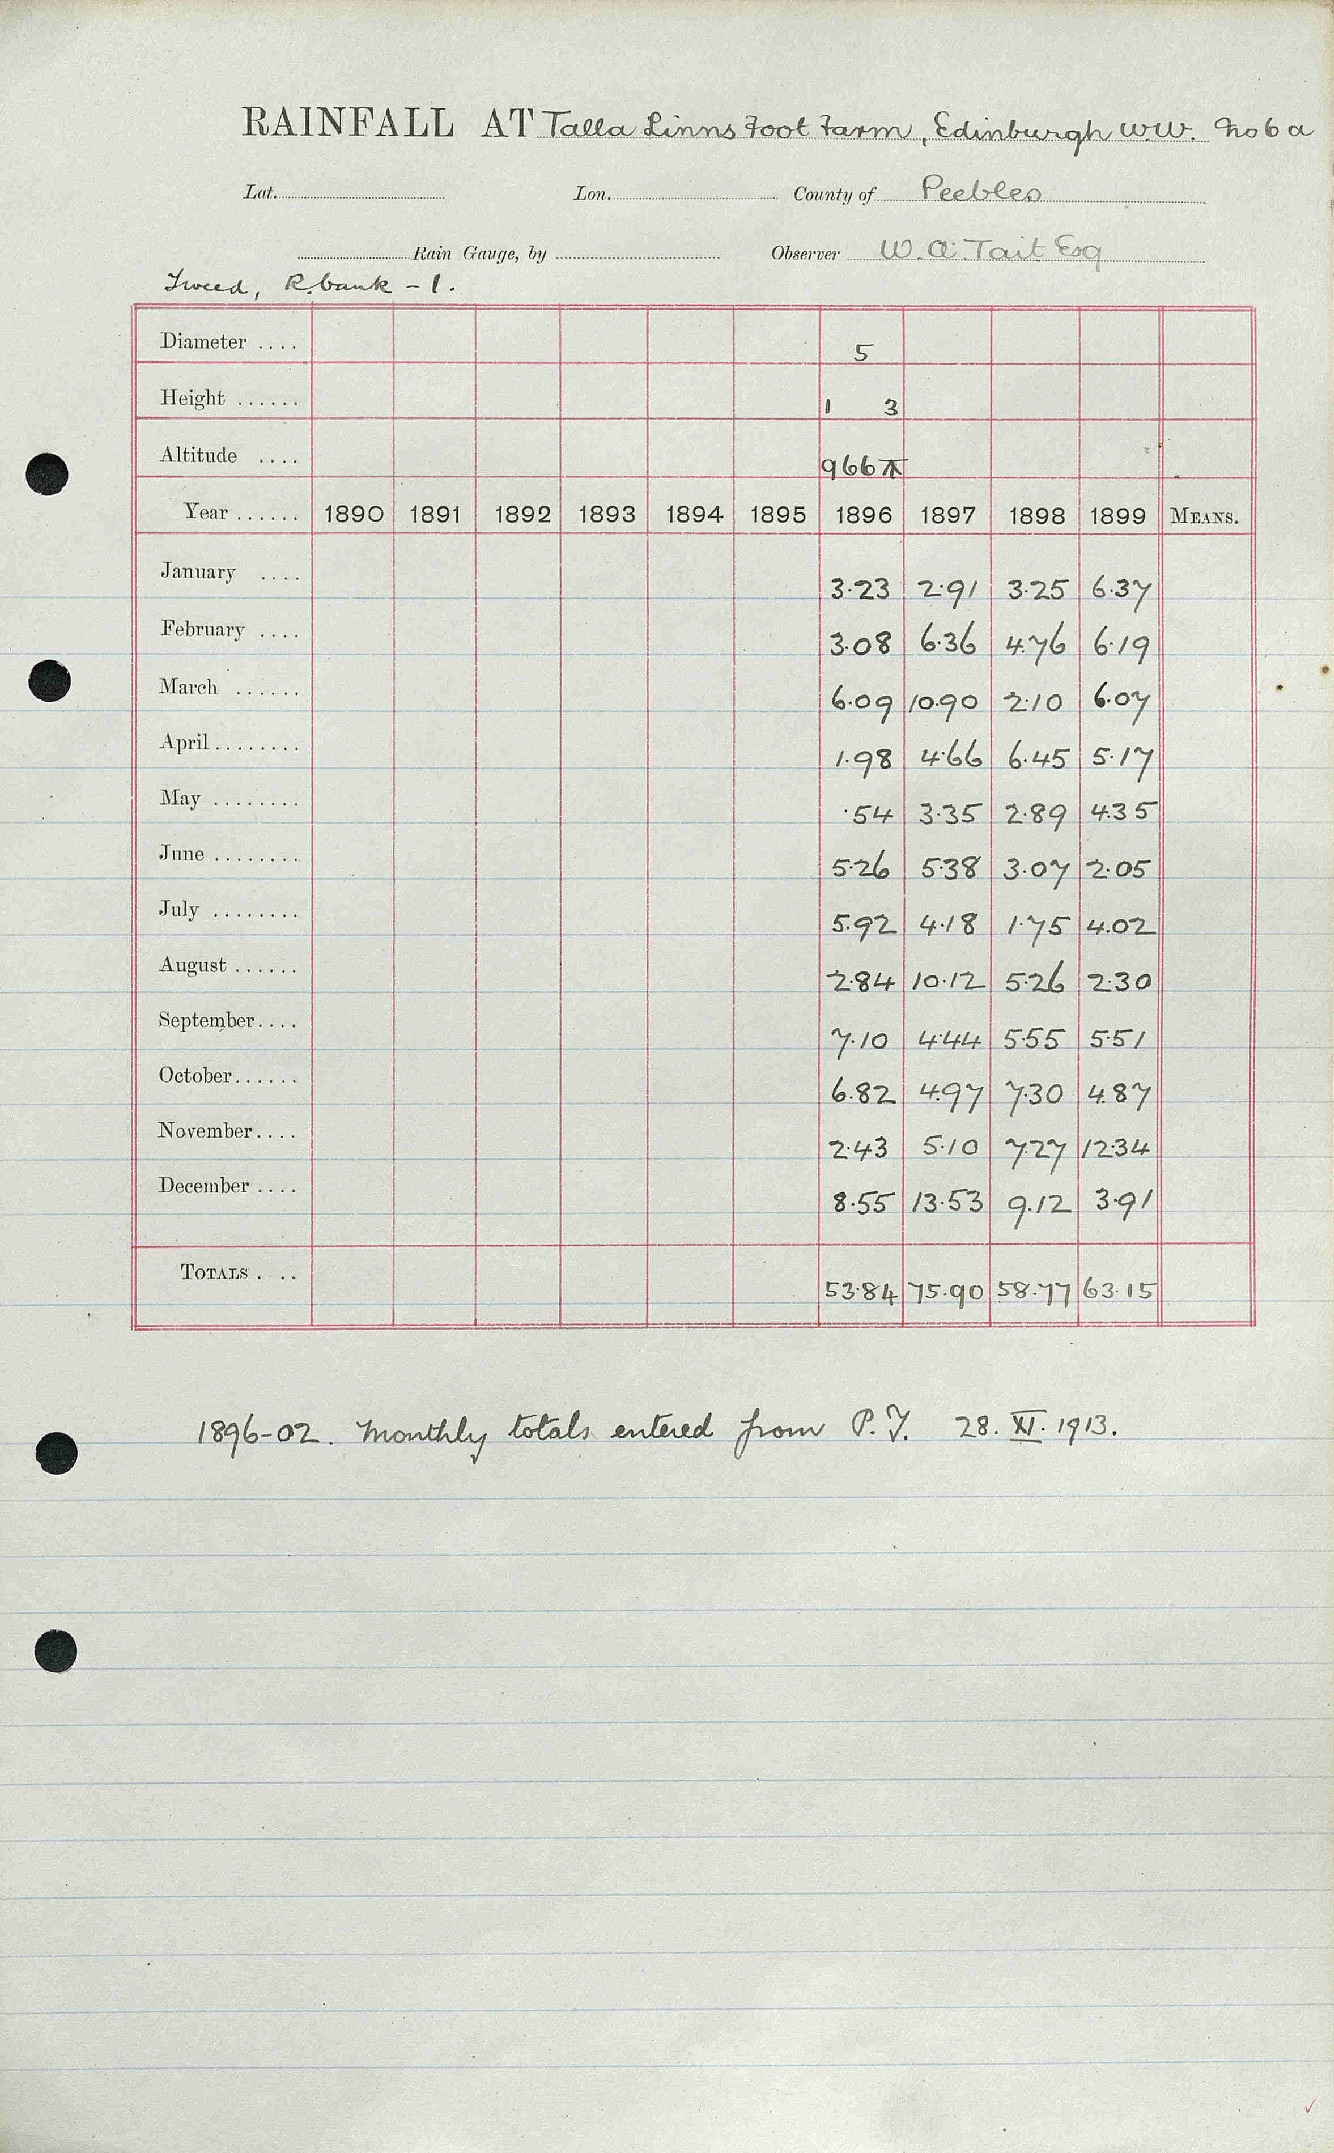 RAINFALL AT Talla Linns Foot Farm, Edinburgh W.W. No 6a
Lat. Lon. County of Peebles
Rain Gauge, by Observer W. A. Tait Esq
Tweed, R. bank - 1.
Diameter .... 5
Height ...... 1 3
Altitude .... 966
Year ...... 1890 1891 1892 1893 1894 1895 1896 1897 1898 1899 MEANS.
January .... 3.23 2.91 3.25 6.37
February .... 3.08 6.36 4.76 6.19
March ...... 6.09 10.90 2.10 6.07
April ........ 1.98 4.66 6.45 5.17
May ........ .54 3.35 2.89 4.35
June ........ 5.26 5.38 3.07 2.05
July ........ 5.92 4.18 1.75 4.02
August ...... 2.84 10.12 5.26 2.30
September.... 7.10 4.44 5.55 5.51
October...... 6.82 4.97 7.30 4.87
November.... 2.43 5.10 7.27 12.34
December .... 8.55 13.53 9.12 3.91
TOTALS . .. 53.84 75.90 58.77 63.15
1896-02. Monthly totals entered from P.Y. 28. XI. 1913.